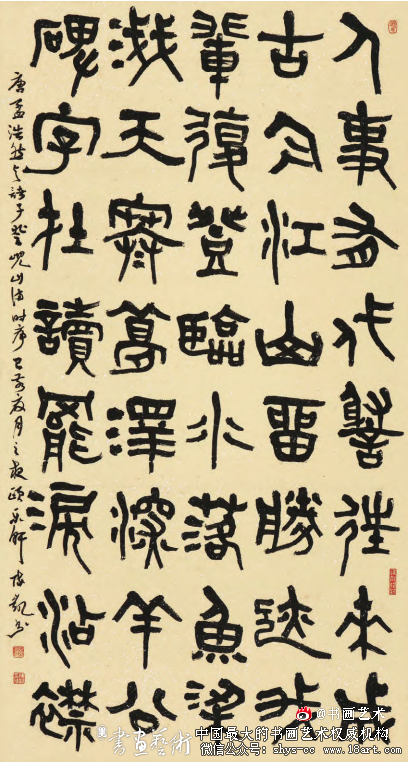 人事有代謝往來成
古今江山畱勝迹我
輩復登臨水落魚梁
淺天寒夢澤深羊公
碑字在讀罷淚沾襟
唐孟浩然与諸子登峴山詩時序己亥夏月之夜
@书画艺术
書畫藝術
中国最大的书画艺术权威机构
微信公众号：shys-cc www.18art.com